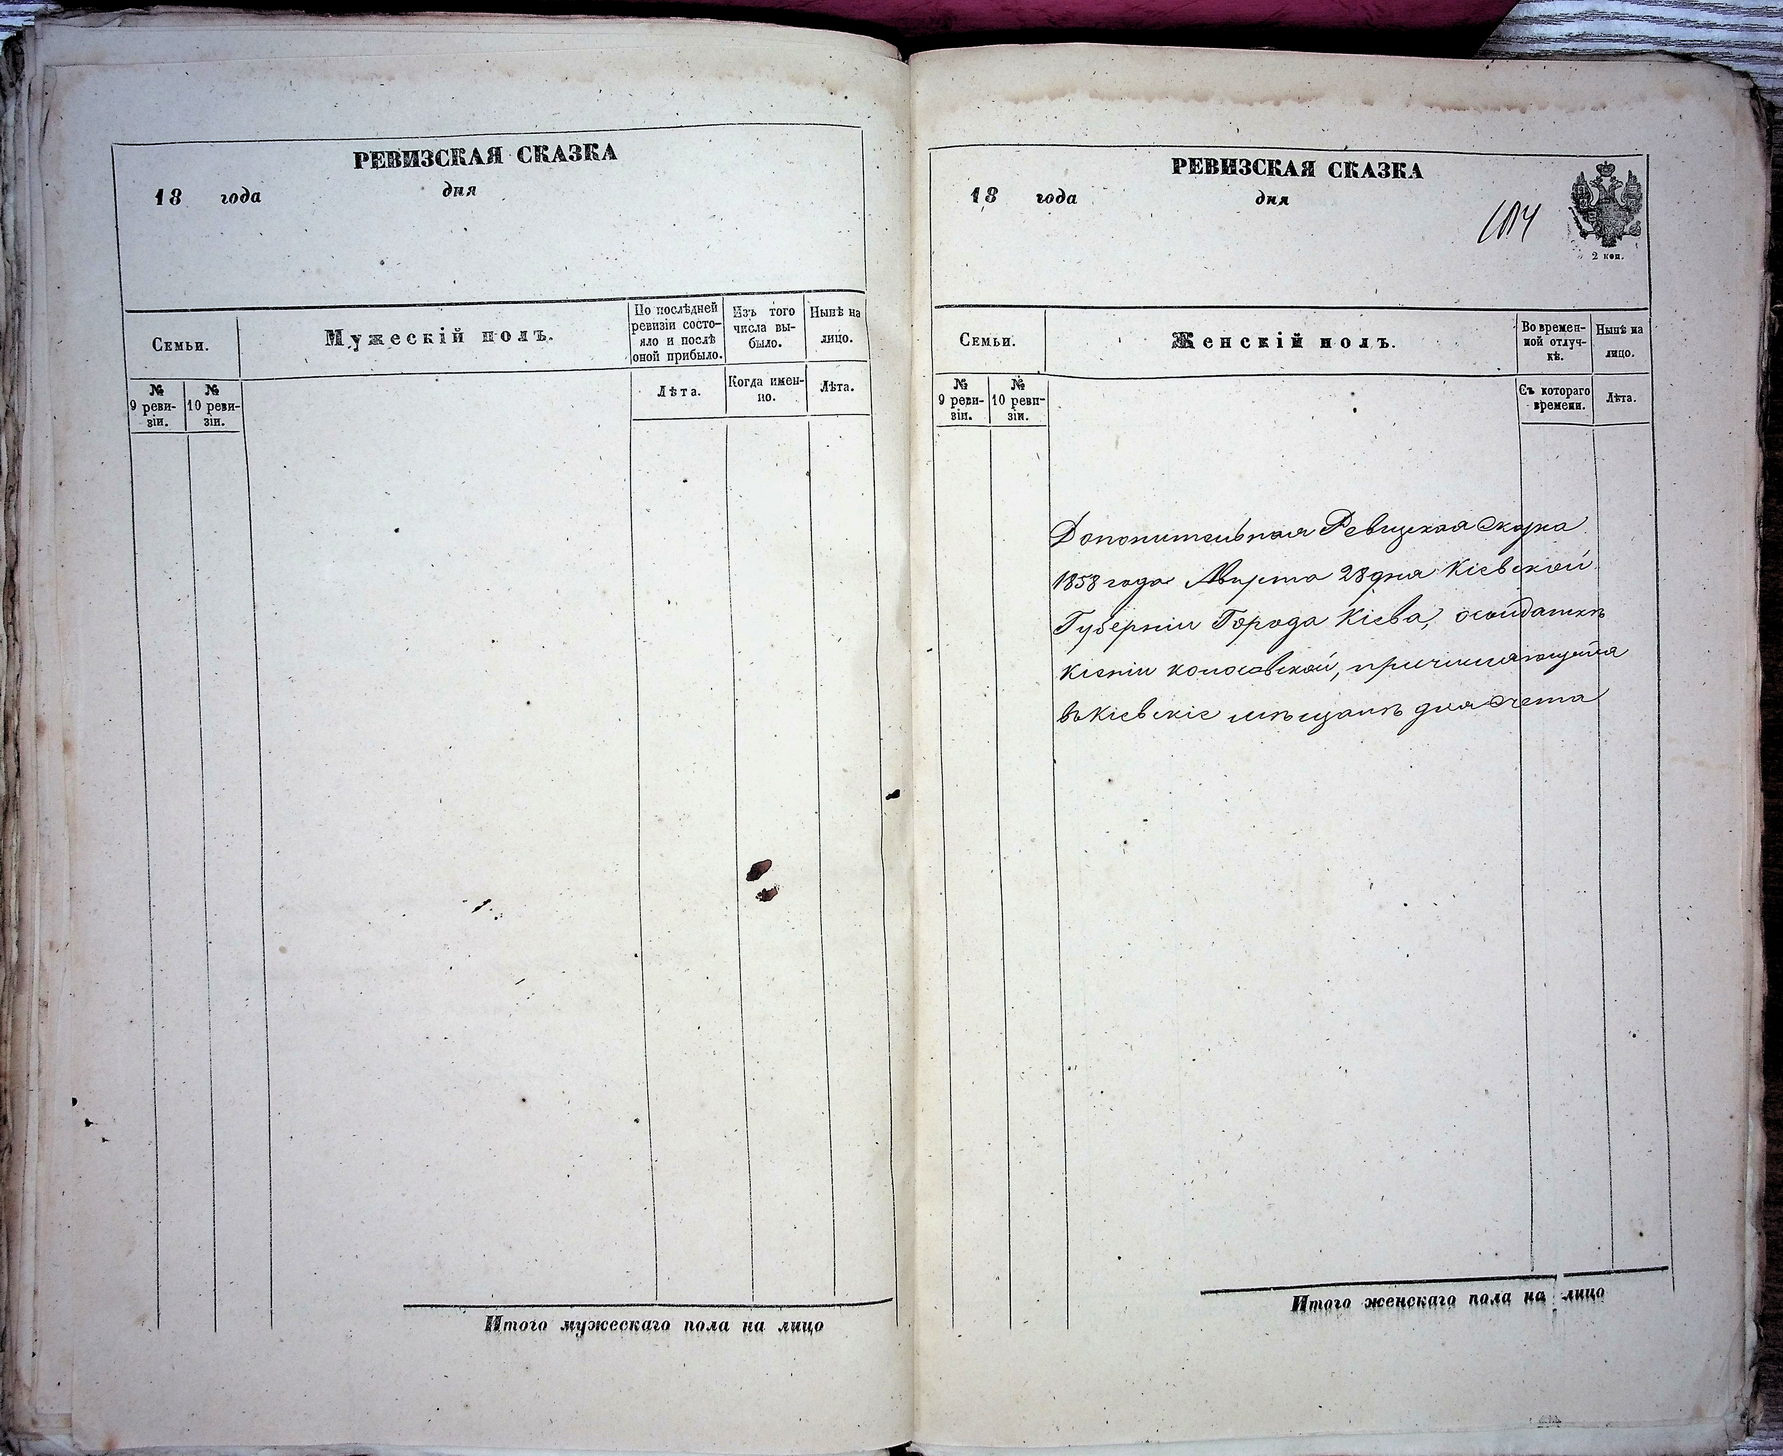 РЕВИЗСКАЯ СКАЗКА
18 года дня
Семьи.
Мужескій полъ.
По послѣдней ревизіи состо-
яло и послѣ
оной прибыло.
Изъ того
числа вы-
было.
Нынѣ на
лицо.
№
9 реви-
зіи.
№
10 реви-
зіи.
Лѣта.
Когда имен-
но.
Лѣта.
Итого мужескаго пола на лицо
РЕВИЗСКАЯ СКАЗКА
18 года дня
2 коп.
Семьи.
Женскій полъ.
Во времен-
ной отлуч-
кѣ.
Нынѣ на
лицо.
№
9 реви-
зіи.
№
10 реви-
зіи.
Съ котораго
времени.
Лѣта.
Дополнительная Ревизская сказка
1858 года Марта 28 дня Кіевской
Губерніи Города Кіева, о солдаткѣ
Ксеніи, причисляющейся
въ Кіевскіе мѣщане для счета
Итого женскаго пола на лицо